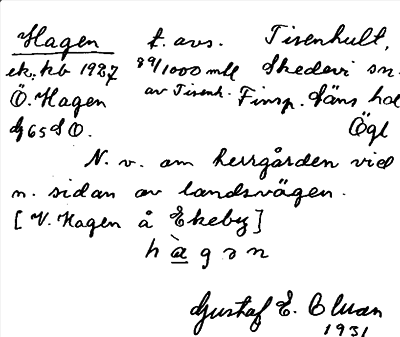 Hagen t. avs. Tisenhult,
ek. kb 1927 89/1000 mtl Skedevi sn.
Ö. Hagen av Tisenh. Finsp. läns hd
G65SO. Ögl
N. v. om herrgården vid
n. sidan av landsvägen.
[V. Hagen å Ekeby]
hàgən
Gustaf E.
1931